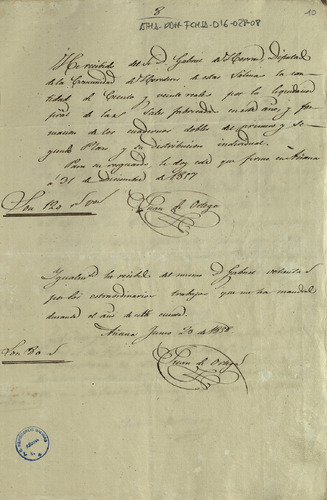 8
10
ATHA-DAH-FCHSA-D16-021-08
He recibido del Sr. D. Gabriel del Diputado
de la Comunidad de Herederos de estas Salinas la can
tidad de Ciento y veinte reales por la liquidacion
final de las Sales fabricadas en este año, y for
macion de los cuadernos dobles del primero y se
gundo Plan y su distribucion individual.
Para su resguardo le doy este que firmo en Añana
á 31 de Diciembre de 1857
Son 120 rs von
Juan de Ortega
Igualmte he recibido del mismo D. Gabriel
por los estraordinarios trabajos que me ha mandado
durante el año de esta cuenta.
Añana Junio 20 de 1858
Son 80 rs
Juan de Ortega